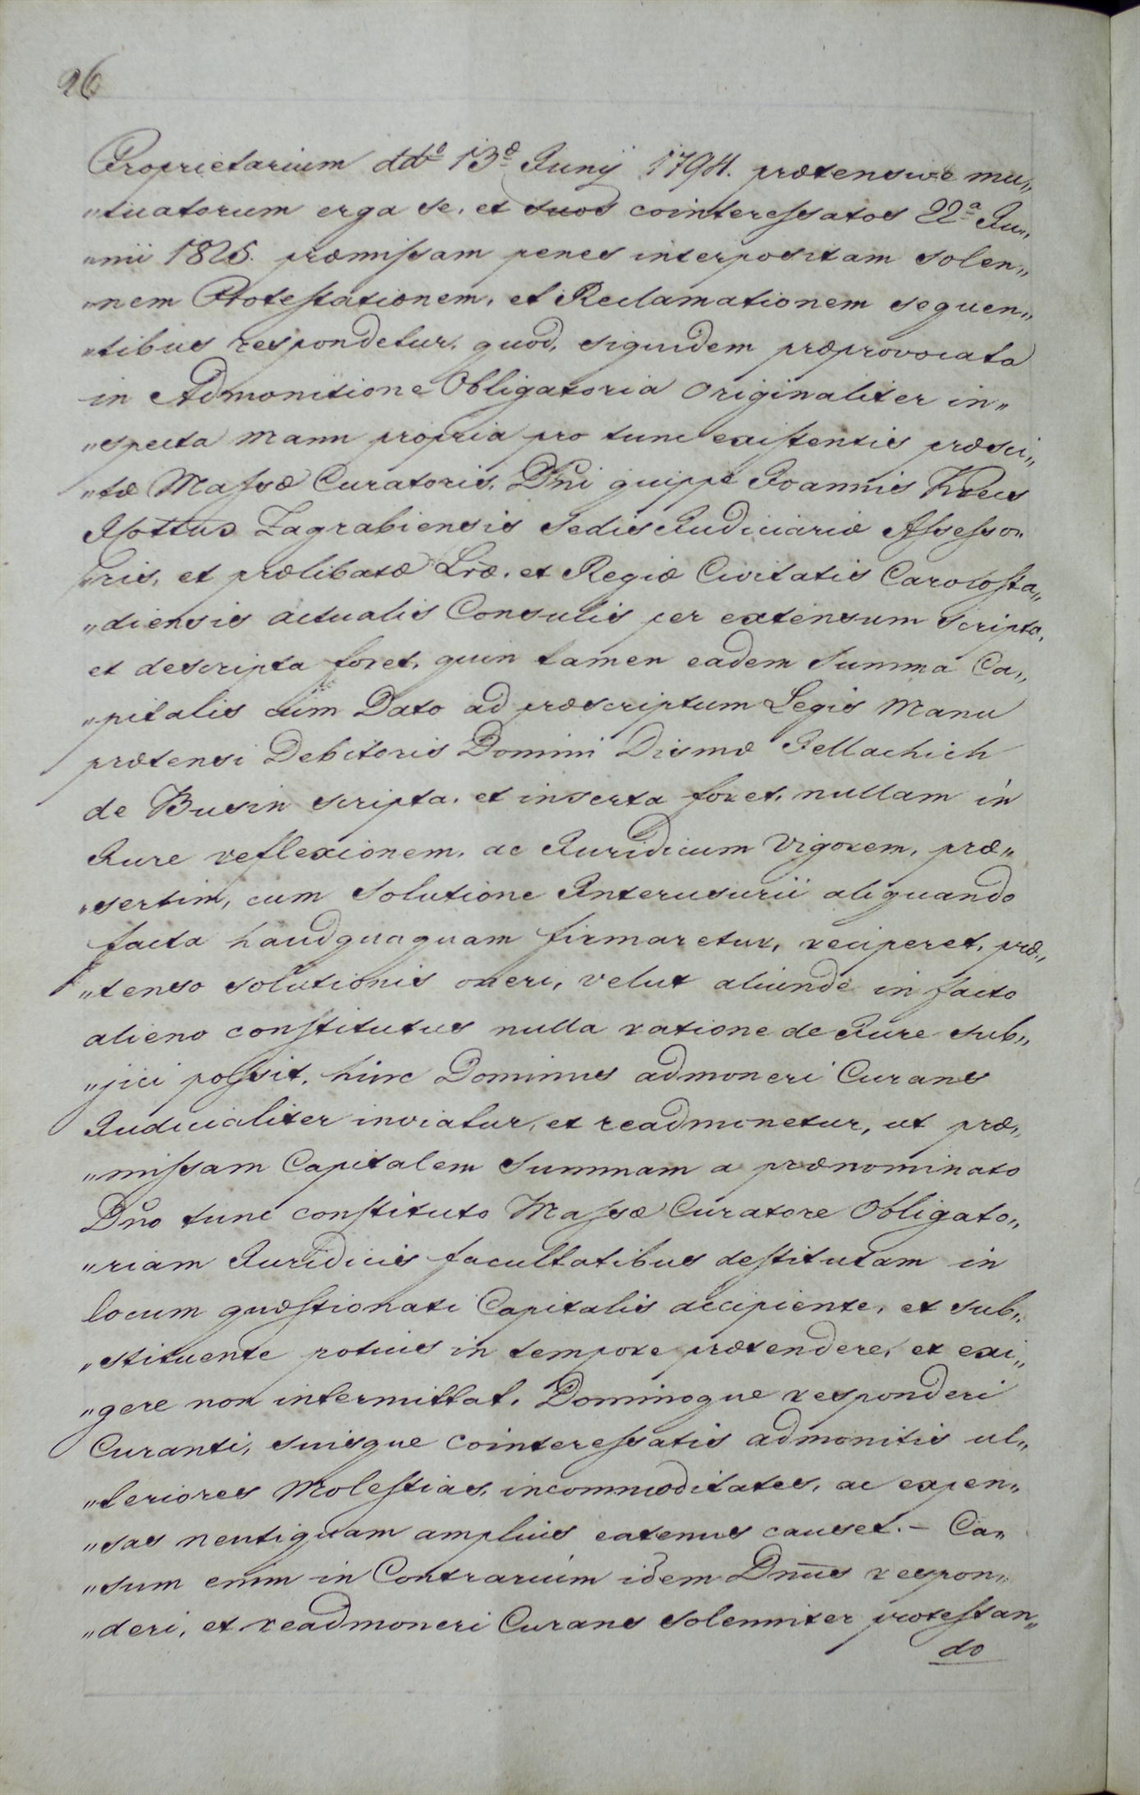 96
Proprietarium ddo 13o Junÿ 1794. prætensive mu„
„tuatorum erga se, et suos cointeressatos 22a Ju„
„nii 1825. præmissam penes interpositam solen„
„nem Protestationem, et Reclamationem sequen„
„tibus respondetur, quod, siquidem præprovocata
in Admonitione Obligatoria Originaliter in„
„specta manu propria pro tunc existentis præsci„
„tæ Massæ Curatoris, Dñi quippe Joannis
Zagrabiensis Sedis Judiciariæ Assesso„
„ris, et prælibatæ Lræ, et Regiæ Civitatis Carolosta„
„diensis actualis Consulis per extensum scripta,
et descripta foret, quin tamen eadem Summa Ca„
„pitalis cum Dato ad præscriptum Legis Manu
prætensi Debitoris Domini Dismæ Jellachich
de Busin scripta, et inserta foret, nullam in
Jure reflexionem, ac Juridicum Vigorem, præ„
„sertim, cum Solutione Interusurii aliquando
facta haudquaquam firmaretur, reciperet, præ„
„tenso solutionis oneri, velut aliunde in facto
alieno constitutus nulla ratione de Jure sub„
„jici possit, hinc Dominus admoneri Curans
Judicialiter inviatur, et readmonetur, ut præ„
„missam Capitalem Summam a prænominato
Dño tunc constituto Massæ Curatore Obligato„
„riam Juridicis facultatibus destitutam in
locum quæstionati Capitalis accipiente, et sub„
„stituente potius in tempore prætendere, et exi„
„gere non intermittat, Dominoque responderi
Curanti, suisque cointeressatis admonitis ul„
„teriores Molestias, incommoditates, ac expen„
„sas neutiquam amplius eatenus causet. – Ca„
„sum enim in Contrarium idem Dnus respon„
„deri, et readmoneri Curans solenniter protestan„
do